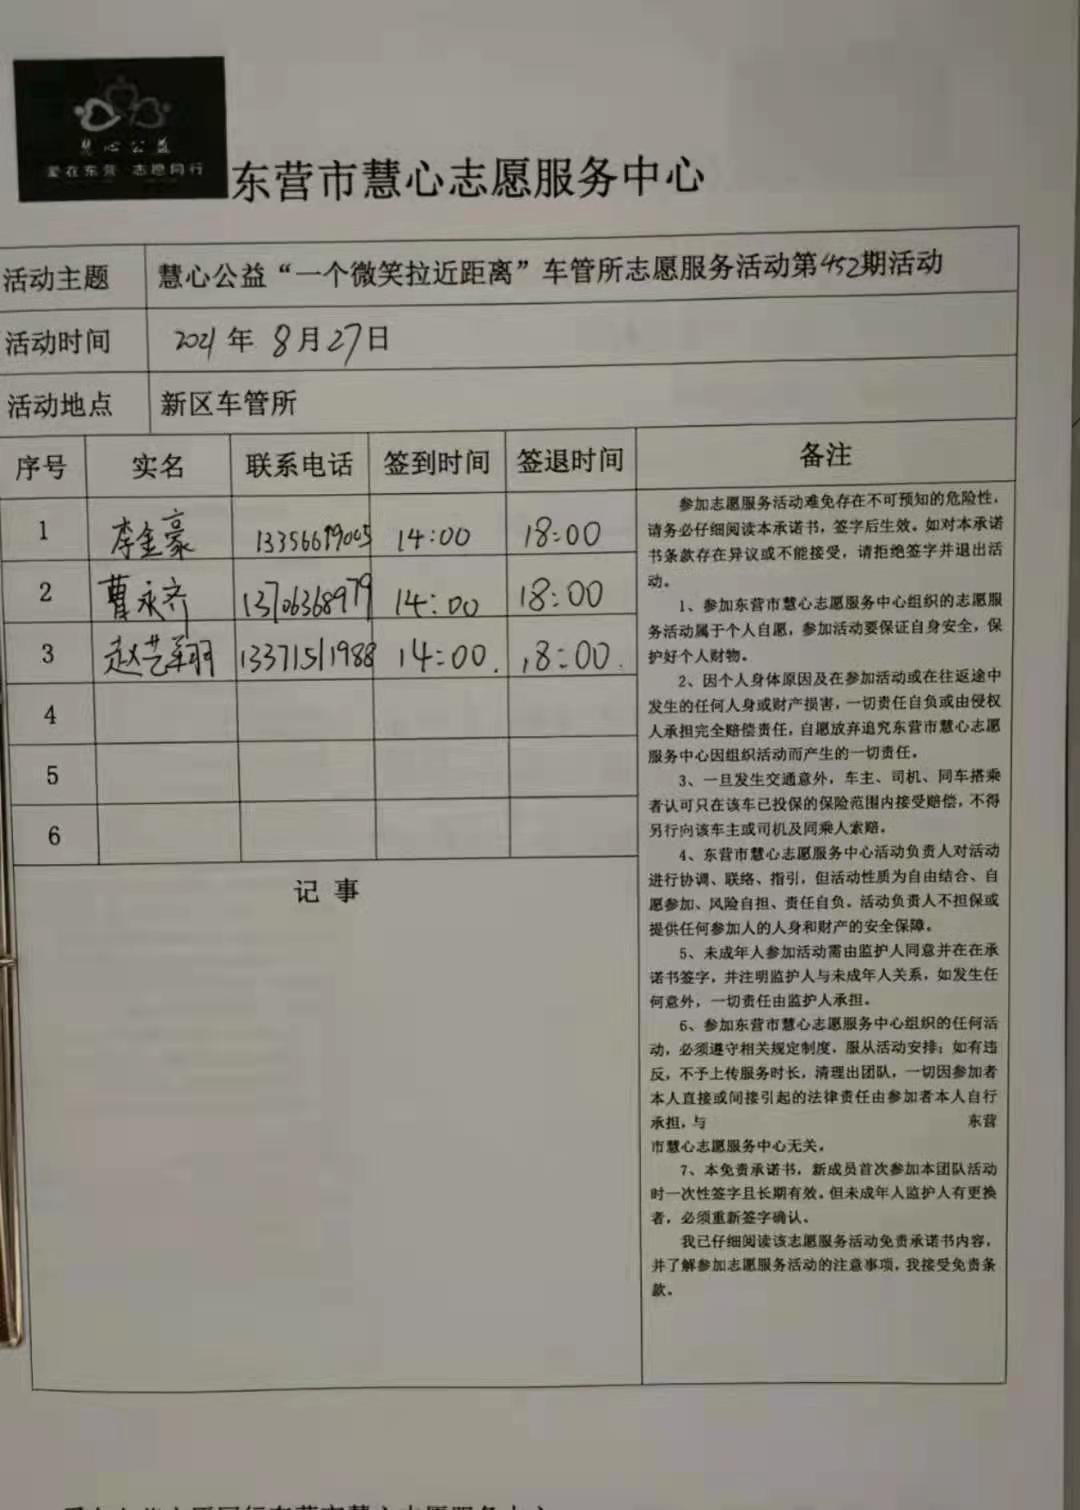 慧心公益
爱在东营 志愿同行
东营市慧心志愿服务中心
活动主题 慧心公益“一个微笑拉近距离”车管所志愿服务活动第452期活动
活动时间 2021年 8月27日
活动地点 新区车管所
序号 实名 联系电话 签到时间 签退时间 备注
1 李金豪 13356699005 14:00 18:00
2 曹永齐 13706368979 14:00 18:00
3 赵艺翔 13371511988 14:00. 18:00.
4
5
6
记 事
参加志愿服务活动难免存在不可预知的危险性,
请务必仔细阅读本承诺书，签字后生效。如对本承诺
书条款存在异议或不能接受，请拒绝签字并退出活
动。
1、参加东营市慧心志愿服务中心组织的志愿服
务活动属于个人自愿，参加活动要保证自身安全，保
护好个人财物。
2、因个人身体原因及在参加活动或在往返途中
发生的任何人身或财产损害，一切责任自负或由侵权
人承担完全赔偿责任，自愿放弃追究东营市慧心志愿
服务中心因组织活动而产生的一切责任。
3、一旦发生交通意外，车主、司机、同车搭乘
者认可只在该车已投保的保险范围内接受赔偿，不得
另行向该车主或司机及同乘人索赔。
4、东营市慧心志愿服务中心活动负责人对活动
进行协调、联络、指引，但活动性质为自由结合、自
愿参加、风险自担、责任自负。活动负责人不担保或
提供任何参加人的人身和财产的安全保障。
5、未成年人参加活动需由监护人同意并在在承
诺书签字，并注明监护人与未成年人关系，如发生任
何意外，一切责任由监护人承担。
6、参加东营市慧心志愿服务中心组织的任何活
动，必须遵守相关规定制度，服从活动安排；如有违
反，不予上传服务时长，清理出团队，一切因参加者
本人直接或间接引起的法律责任由参加者本人自行
承担，与 东营
市慧心志愿服务中心无关。
7、本免责承诺书，新成员首次参加本团队活动
时一次性签字且长期有效。但未成年人监护人有更换
者，必须重新签字确认。
我已仔细阅读该志愿服务活动免责承诺书内容，
并了解参加志愿服务活动的注意事项，我接受免责条
款。